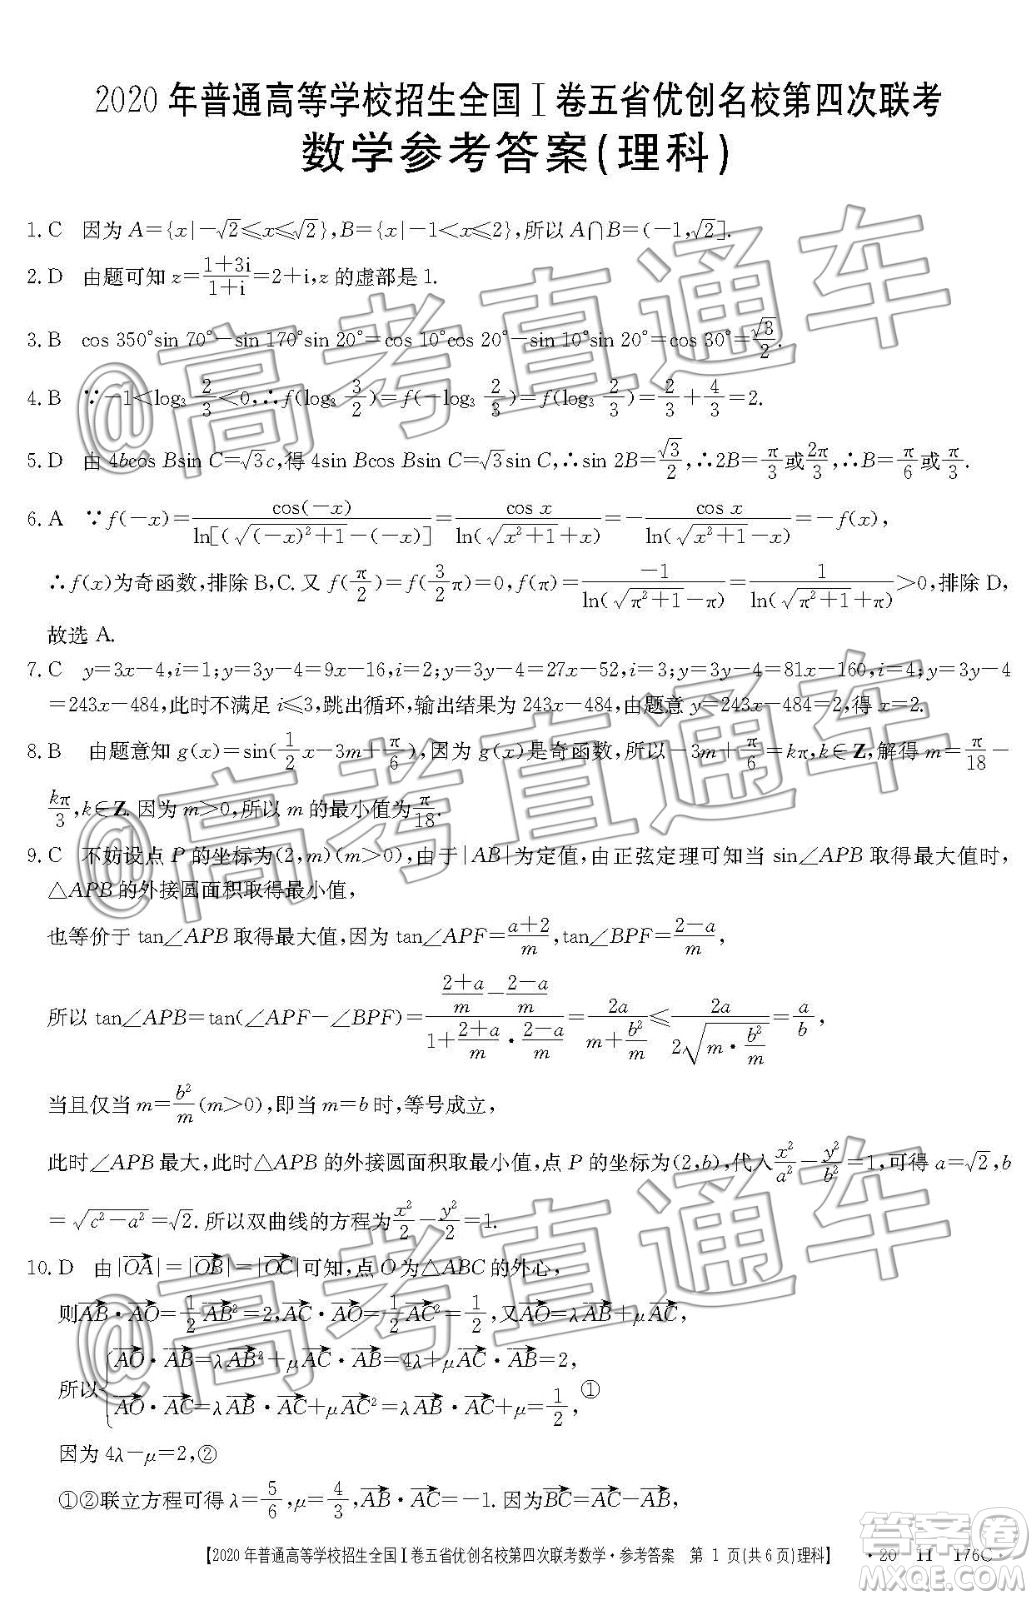 2020 年普通高等学校招生全国Ⅰ卷五省优创名校第四次联考
数学参考答案(理科)
1. C 因为 A={x|-√2≤x≤√2},B={x|-1<x≤2},所以 A∩B=(-1,√2].
2. D 由题可知 z=(1+3i)/(1+i)=2+i,z 的虚部是 1.
3. B cos 350°sin 70°-sin 170°sin 20°=cos 10°cos 20°-sin 10°sin 20°=cos 30°=√3/2.
4. B ∵-1<log₃ 2/3<0,∴f(log₃ 3/2)=f(-log₃ 2/3)=f(log₃ 2/3)=2/3+4/3=2.
5. D 由 4bcos Bsin C=√3c,得 4sin Bcos Bsin C=√3sin C,∴sin 2B=√3/2,∴2B=π/3或2π/3,∴B=π/6或π/3.
6. A ∵f(-x)=cos(-x)/ln[(√((-x)²+1)-(-x)]=cos x/ln(√(x²+1)+x)=-cos x/ln(√(x²+1)-x)=-f(x),
∴f(x)为奇函数,排除 B,C. 又 f(π/2)=f(3/2 π)=0,f(π)=-1/ln(√(π²+1)-π)=1/ln(√(π²+1)+π)>0,排除 D,
故选 A.
7. C y=3x-4,i=1;y=3y-4=9x-16,i=2;y=3y-4=27x-52,i=3;y=3y-4=81x-160,i=4;y=3y-4
=243x-484,此时不满足 i≤3,跳出循环,输出结果为 243x-484,由题意 y=243x-484=2,得 x=2.
8. B 由题意知 g(x)=sin(1/2 x-3m+π/6),因为 g(x)是奇函数,所以-3m+π/6=kπ,k∈Z,解得 m=π/18-
kπ/3,k∈Z. 因为 m>0,所以 m 的最小值为π/18.
9. C 不妨设点 P 的坐标为(2,m)(m>0),由于|AB|为定值,由正弦定理可知当 sin∠APB 取得最大值时,
△APB 的外接圆面积取得最小值,
也等价于 tan∠APB 取得最大值,因为 tan∠APF=(a+2)/m,tan∠BPF=(2-a)/m,
所以 tan∠APB=tan(∠APF-∠BPF)=((2+a)/m-(2-a)/m)/(1+(2+a)/m·(2-a)/m)=2a/(m+b²/m)≤2a/(2√(m·b²/m))=a/b,
当且仅当 m=b²/m(m>0),即当 m=b 时,等号成立,
此时∠APB 最大,此时△APB 的外接圆面积取最小值,点 P 的坐标为(2,b),代入x²/a²-y²/b²=1,可得 a=√2,b
=√(c²-a²)=√2. 所以双曲线的方程为x²/2-y²/2=1.
10. D 由|OA|=|OB|=|OC|可知,点 O 为△ABC 的外心,
则AB·AO=1/2 AB²=2,AC·AO=1/2 AC²=1/2,又AO=λAB+μAC,
所以{AO·AB=λAB²+μAC·AB=4λ+μAC·AB=2,
AO·AC=λAB·AC+μAC²=λAB·AC+μ=1/2, ①
因为 4λ-μ=2,②
①②联立方程可得 λ=5/6,μ=4/3,AB·AC=-1. 因为BC=AC-AB,
【2020 年普通高等学校招生全国Ⅰ卷五省优创名校第四次联考数学·参考答案 第 1 页(共 6 页)理科】 ·20-11-176C·
@高考直通车
@高考直通车
@高考直通车
答案圈
MXQE.COM